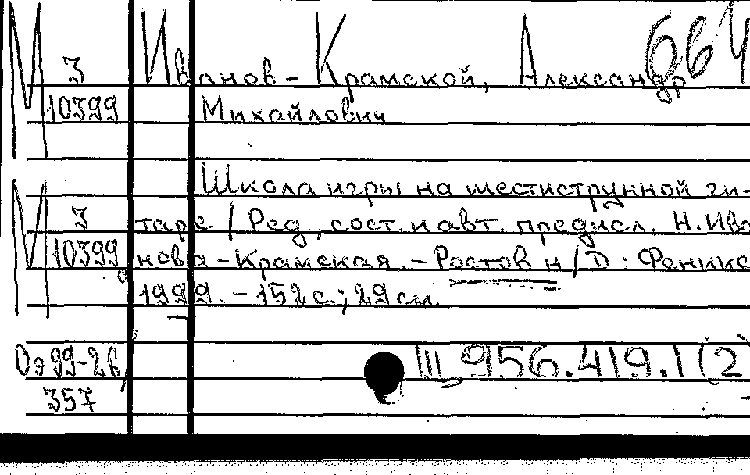 М 3 10399
Иванов-Крамской, Александр
Михайлович
Школа игры на шестиструнной ги-
М 3 10399
таре / Ред., сост. и авт. предисл. Н. Ива
нова-Крамская. - Ростов н/Д : Феникс
1999. - 152 с.; 29 см.
Оэ 99-26
357
Ш 956.419.1(2